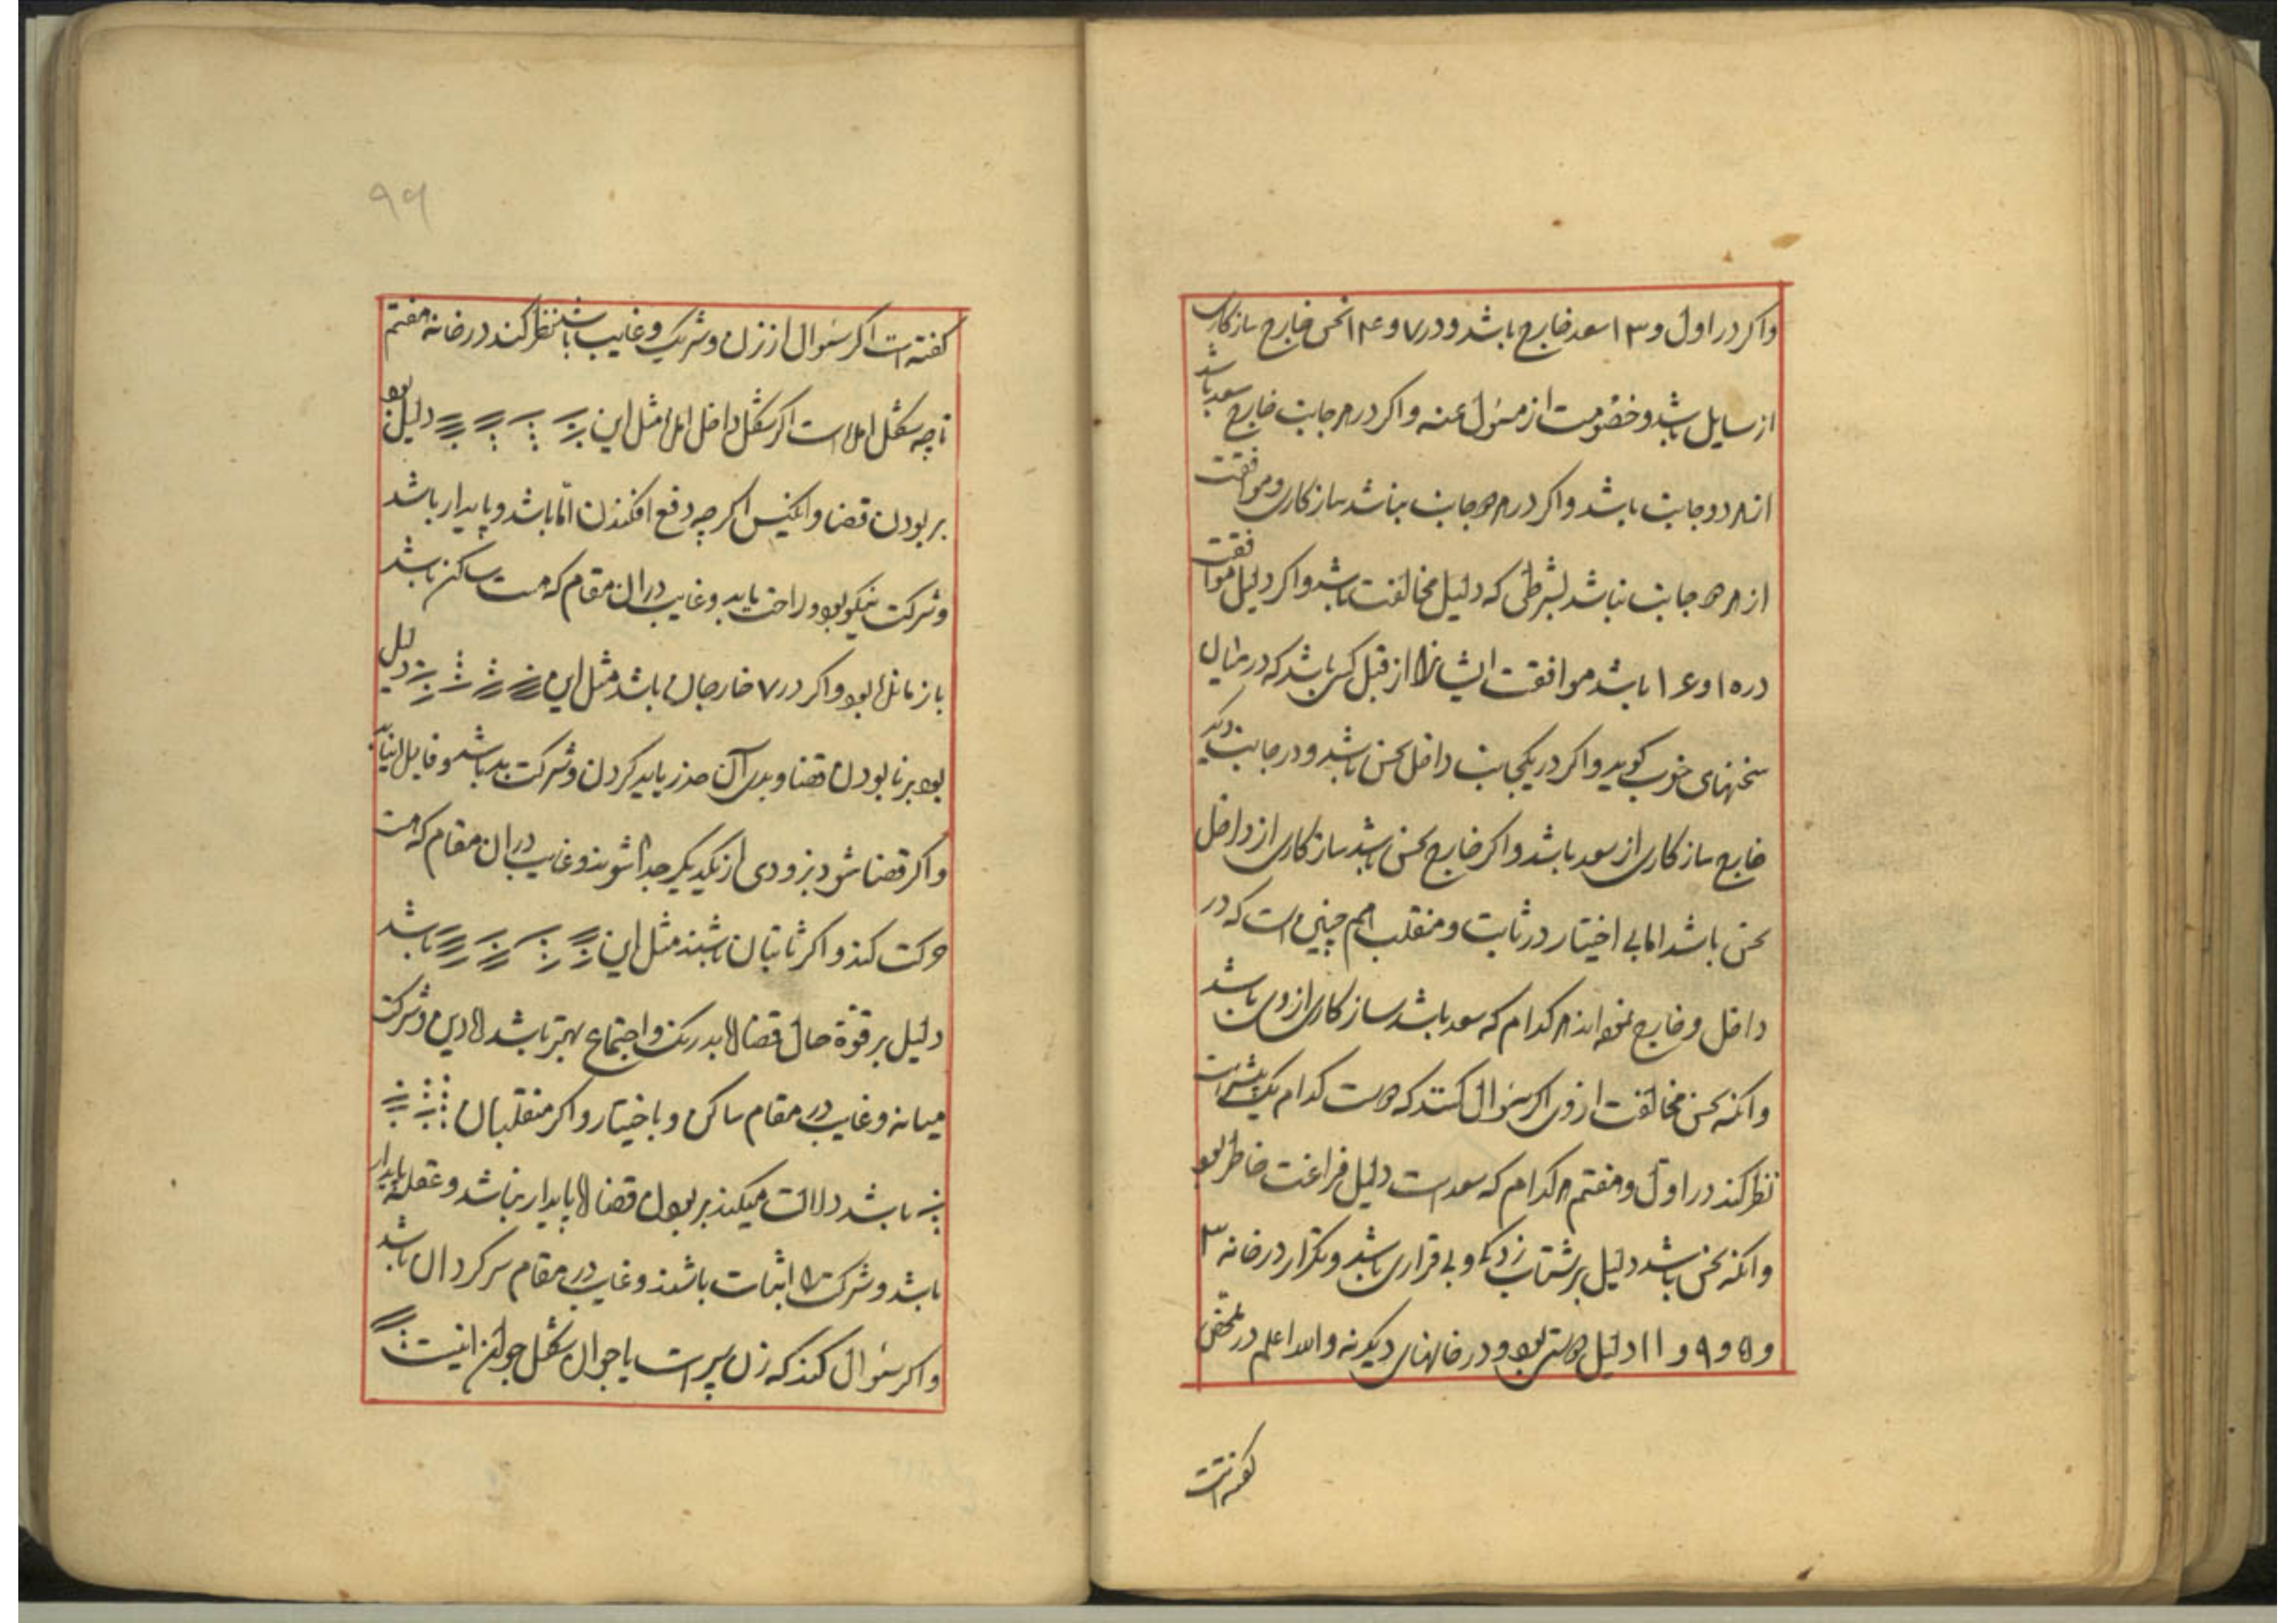 واکر در اول و ۱۳ سعد خارج باشد و در ۷ و ۱۴ نحس خارج سازکاری
از سایل باشد و خصومت از مسول عنه واکر در هر جانب خارج سعد باشد
از هر دو جانب باشد واکر در هر دو جانب نباشد سازکاری و موافقت
از هر دو جانب نباشد بشرطی که دلیل مخالفت باشد واکر دلیل موافقت
در ۱۵ و ۱۶ باشد موافقت ایشانرا از قبل کسی باشد که در میان
سخنهای خوب کوید واکر در یکجانب داخل نحس باشد و در جانب دیکر
خارج سازکاری از سعد باشد واکر خارج نحس باشد سازکاری از داخل
نحس باشد اما بی اختیار در ثابت و منقلب هم چنین است که در
داخل و خارج نموده اند هر کدام که سعد باشد سازکاری از وی باشد
وانکه نحس مخالفت از وی اکر سوال کنند که دوست کدام یک بیشتر است
نظر کند در اول و هفتم هر کدام که سعد است دلیل فراغت خاطر بود
وانکه نحس باشد دلیل بر شتاب زدکی و بی قراری باشد و تکرار در خانه ۳
و ۵ و ۹ و ۱۱ دلیل دوستی بود و در خانهای دیکر نه والله اعلم در
کفته است
۹۹
کفته است اکر سوال از زن و شریک و غایب باشد نظر کند در خانه هفتم
تا چه شکل امده است اکر شکل داخل امده مثل این دلیل بود
بر بودن قضا وانکیس اکر چه دفع افکندن اما باشد و پایدار باشد
و شرکت نیکو بود و راحت یابد و غایب در ان مقام که هست ساکن باشد
باز ماند بود واکر در ۷ خارجان باشد مثل این دلیل
بود بر نابودن قضا و بدی آن حذر باید کردن و شرکت بد باشد و
واکر قضا شود بزودی از یکدیکر جدا شوند و غایب در ان مقام که هست
حرکت کند واکر ثابتان باشند مثل این باشد
دلیل بر قوة حال قضا اما بدرنک و اجتماع بهتر باشد و شرکت
میانه و غایب در مقام ساکن و با خیار واکر منقلبان
باشد دلالت میکند بر بودن قضا اما پایدار نباشد و
باشد و شرکت باشند و غایب در مقام سرکردان باشد
واکر سوال کند که زن پیر است یا جوان شکل جوان اینست